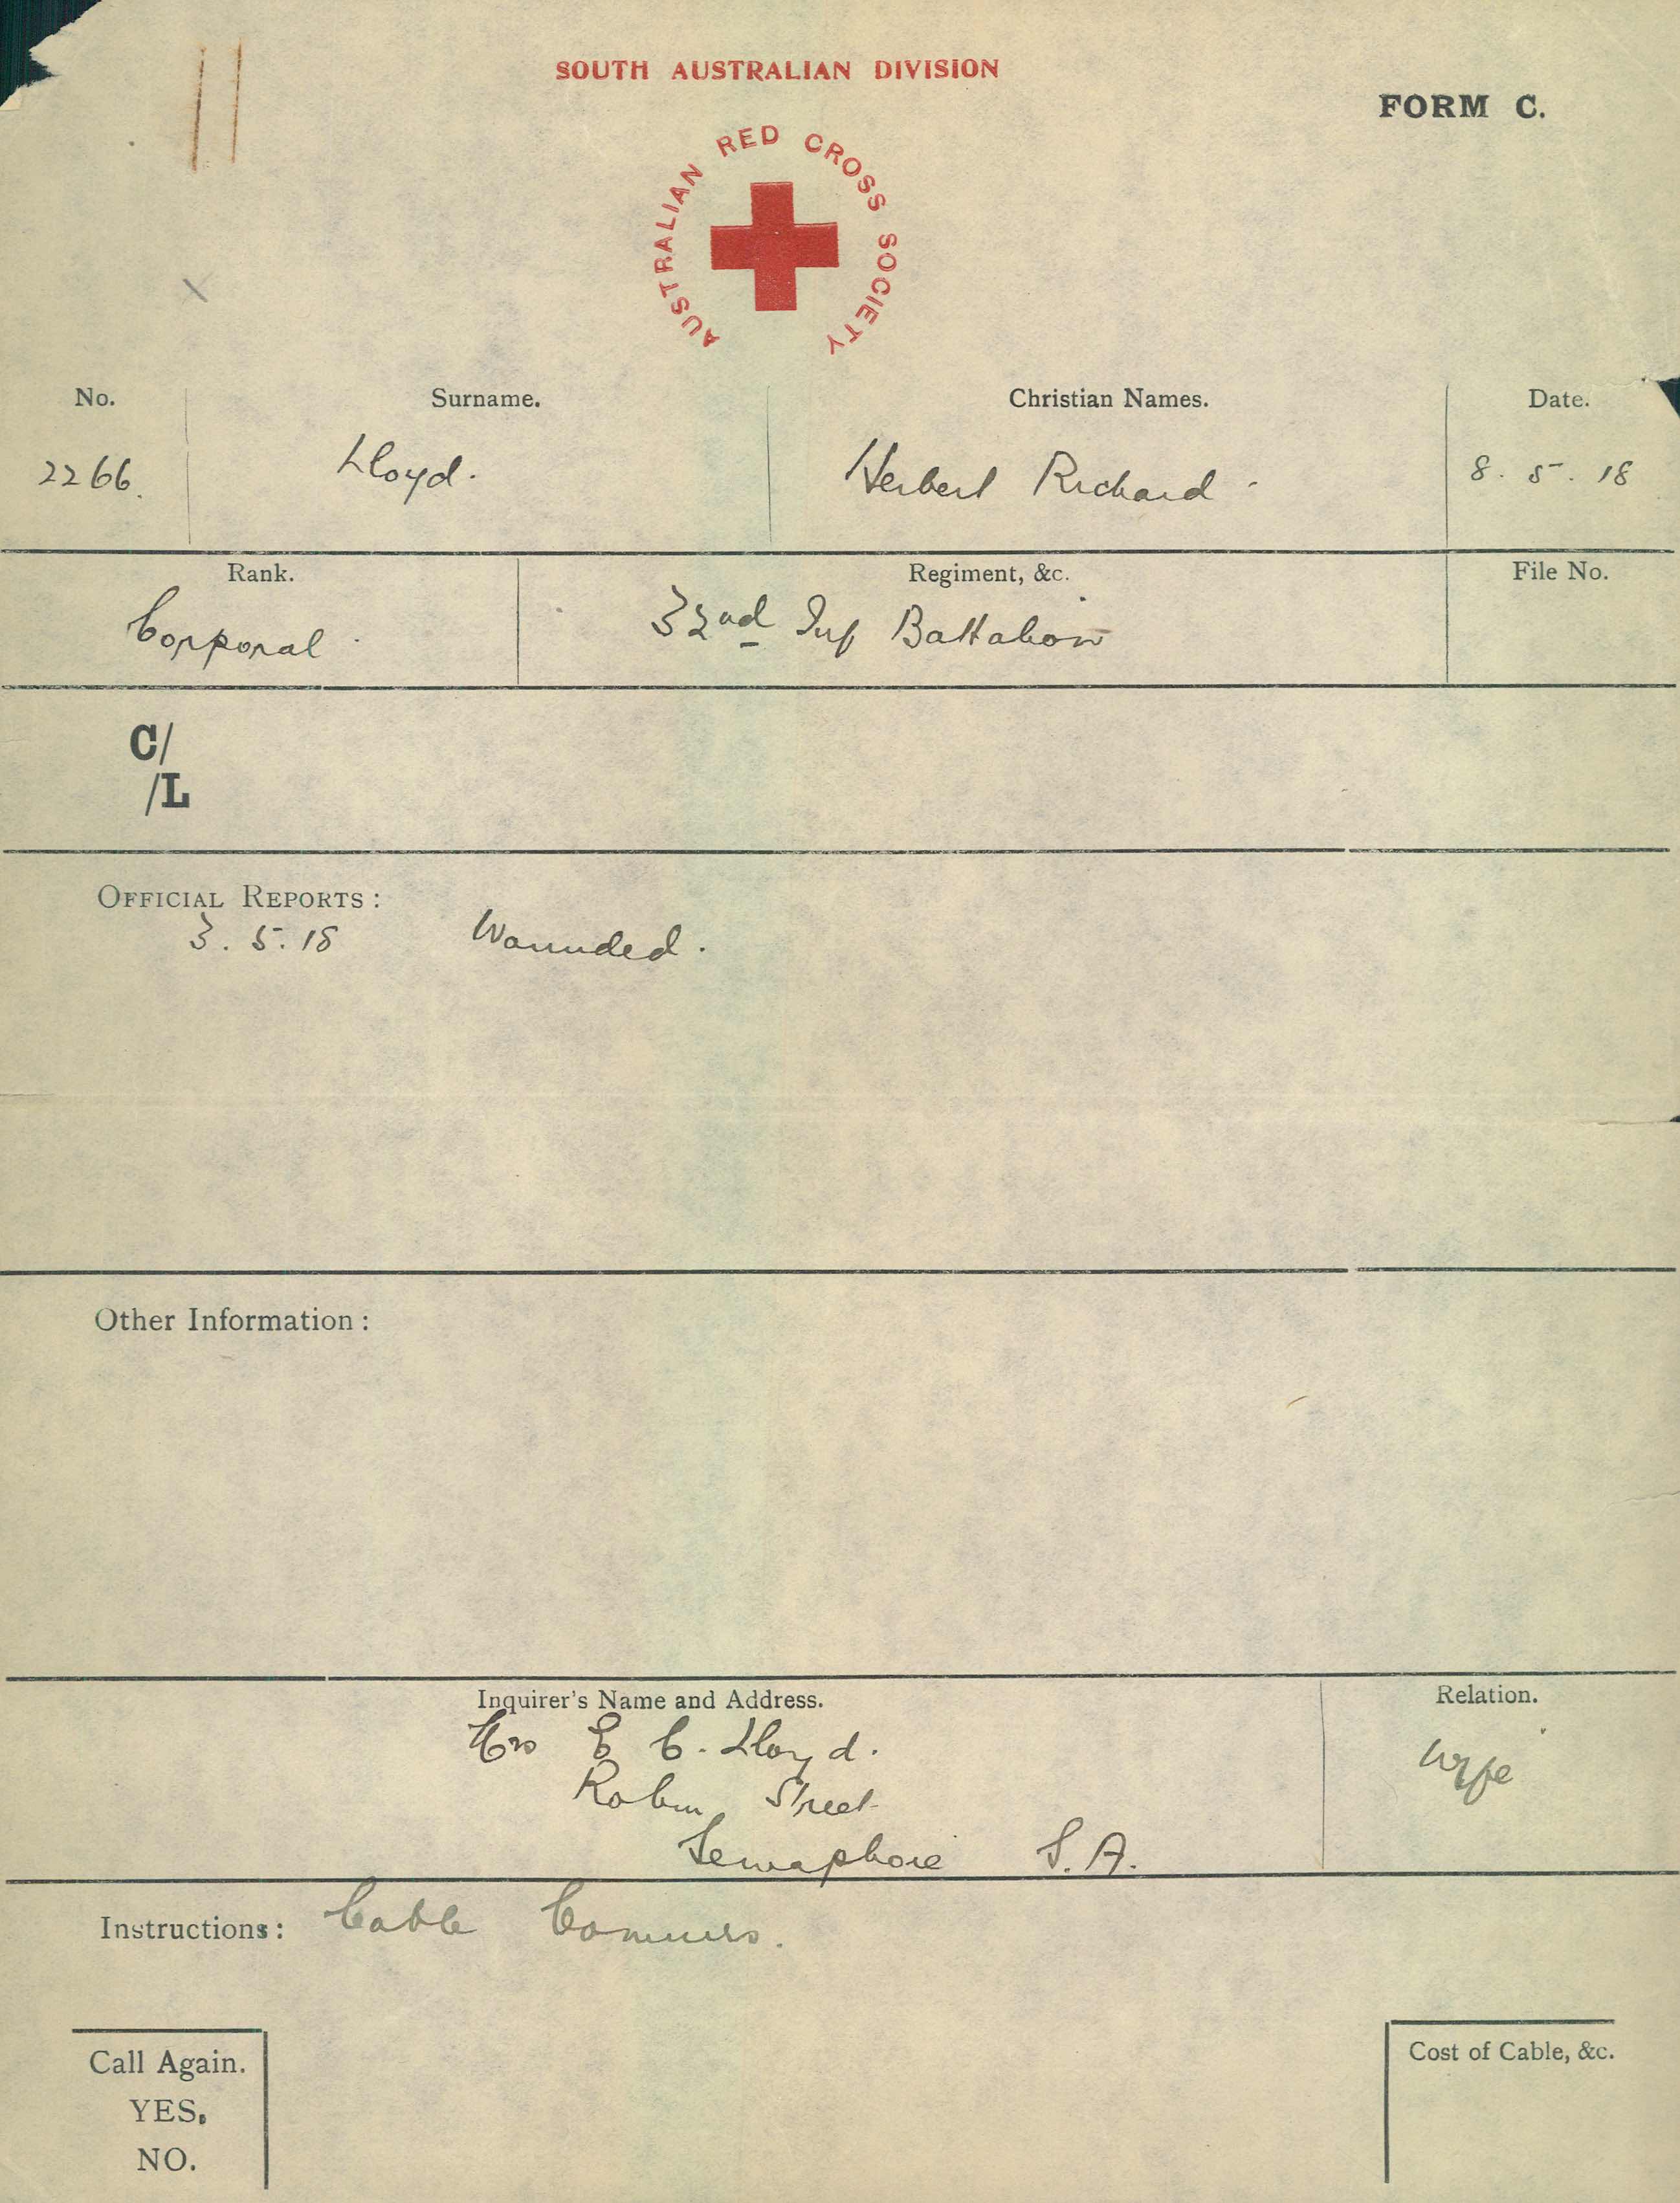 SOUTH AUSTRALIAN DIVISION
FORM C.
AUSTRALIAN RED CROSS SOCIETY
No. Surname. Christian Names. Date.
2266. Lloyd. Herbert Richard 8. 5. 18
Rank. Regiment, &c. File No.
Corporal 32nd Inf Battalion
C/
/L
OFFICIAL REPORTS:
3. 5. 18 Wounded.
Other Information:
Inquirer's Name and Address. Relation.
Mrs E C. Lloyd.
Wife
Street
Semaphore S.A.
Instructions: Cable
Call Again.
YES.
NO.
Cost of Cable, &c.